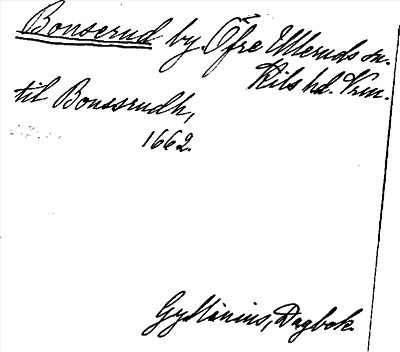 Bonserud by Öfre Ulleruds sn.
Kils hd. Vrm.
til Bonssrudh,
1662.
Gyllenius, Dagbok.